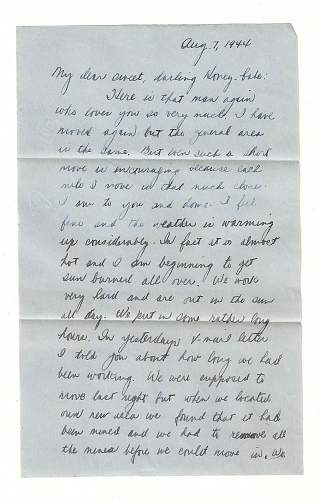 Aug. 7, 1944
My dear sweet, darling Honey-babe:
Here is that man again
who loves you so very much. I have
moved again but the general area
is the same. But even such a short
move is encouraging because each
mile I move is that much closer
I am to you and home. I feel
fine and the weather is warming
up considerably. In fact it is almost
hot and I am beginning to get
sun burned all over. We work
very hard and are out in the sun
all day. We put in some rather long
hours. In yesterdays V-mail letter
I told you about how long we had
been working. We were supposed to
move last night but when we located
our new area we found that it had
been mined and we had to remove all
the mines before we could move in. We